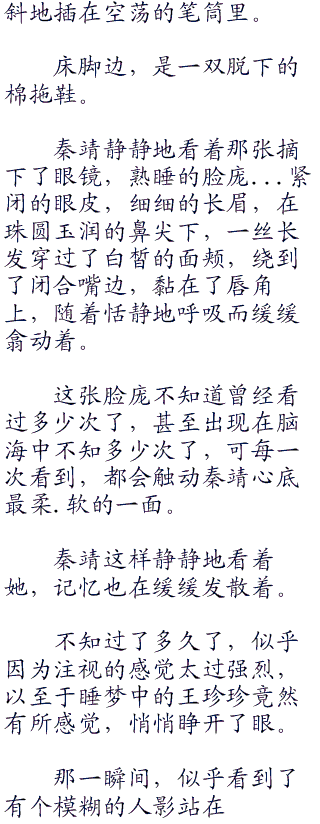 斜地插在空荡的笔筒里。
床脚边，是一双脱下的
棉拖鞋。
秦靖静静地看着那张摘
下了眼镜，熟睡的脸庞...紧
闭的眼皮，细细的长眉，在
珠圆玉润的鼻尖下，一丝长
发穿过了白皙的面颊，绕到
了闭合嘴边，黏在了唇角
上，随着恬静地呼吸而缓缓
翕动着。
这张脸庞不知道曾经看
过多少次了，甚至出现在脑
海中不知多少次了，可每一
次看到，都会触动秦靖心底
最柔.软的一面。
秦靖这样静静地看着
她，记忆也在缓缓发散着。
不知过了多久了，似乎
因为注视的感觉太过强烈，
以至于睡梦中的王珍珍竟然
有所感觉，悄悄睁开了眼。
那一瞬间，似乎看到了
有个模糊的人影站在